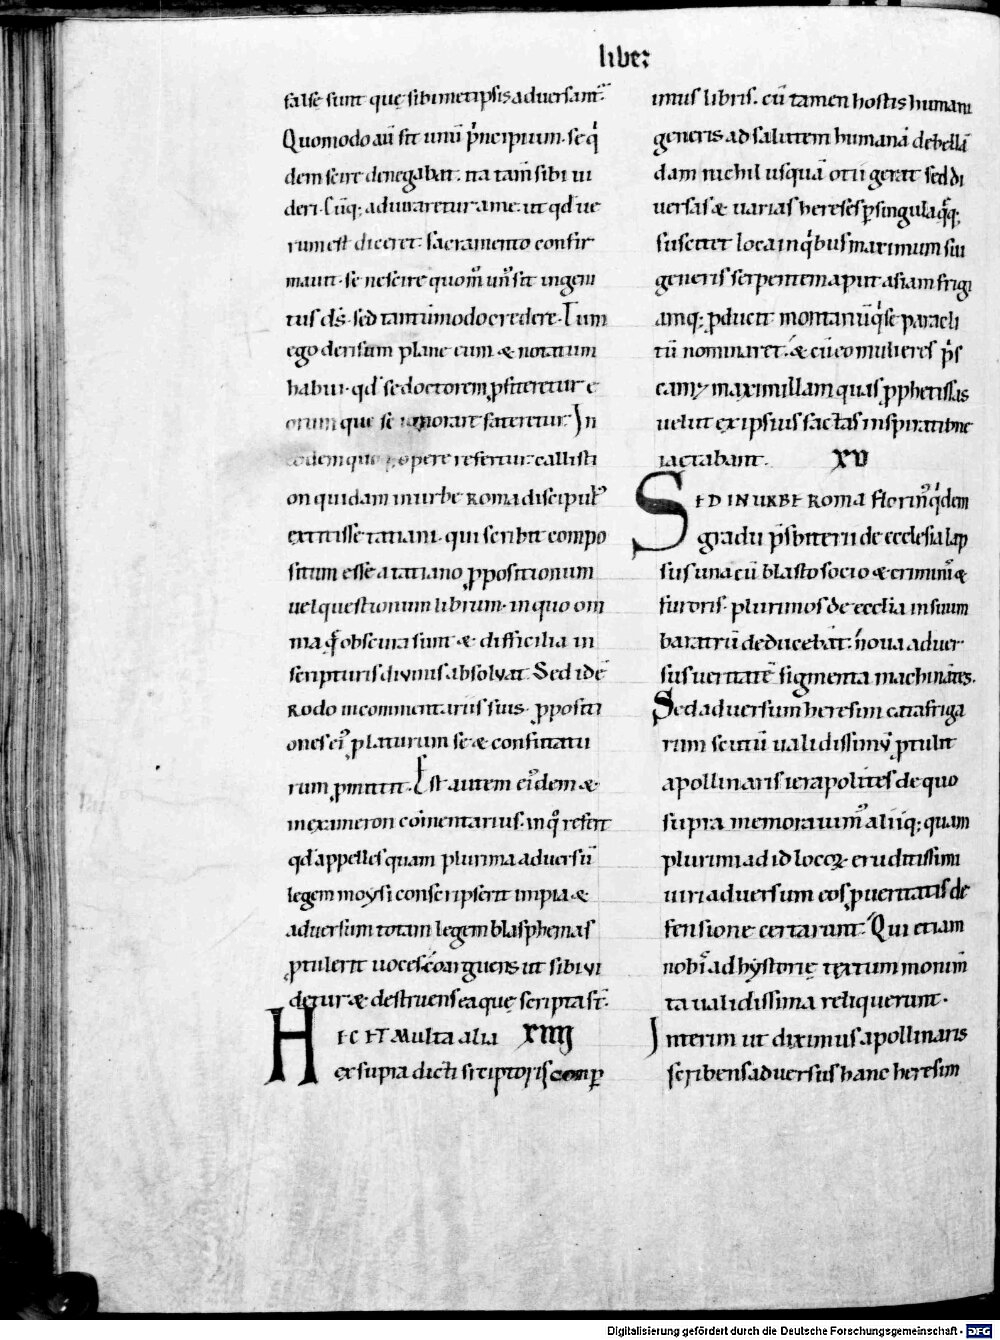 liber
false sunt que sibimetipsis adversant᷑.
Quomodo aū sit unū p̍ncipium. se q̍
dem scire denegabat. Ita tam̄ sibi ui
deri. Cūq; adiuraretur a me. ut qd̄ ue
rum est diceret. sacramento confir
mauit. se nescire quom̊ un᷑ sit ingeni
tus ds̄. sed tantūmodo credere. Tum
ego derisum plane eum & notatum
habui. qd̄ se doctorem ꝓfiteretur e
orum que se ignorare fateretur. In
eodem quoq; opere refertur. callisti
on quidam in urbe ROMA discipul᷑
extitisse tatiani. qui scribit compo
situm esse a tatiano ꝓpositionum
uel questionum librum. in quo om
nia q̄ obscura sunt & difficilia in
scripturis diuinis absoluat. Sed idē
RODO in commentariis suis. ꝓpositi
ones ei᷑ platurum se & confutatu
rum ꝓmittit. Est autem ei᷑dem &
in exameron com̄entarius. in q̊ refert
qd̄ appelles quam plurima aduersū
legem moysi conscripserit impia &
aduersum totam legem blasphemas
ꝓtulerit uoces. coarguens ut sibi ui
detur & destruens ea que scripta st̄.
HEC ET Multa alia XIIII
ex supra dicti scriptoris comp̄
imus libris. cū tamen hostis humani
generis ad salutem humanā debellā
dam nichil usquā otii gerat sed di
uersas & uarias hereses ꝑ singula q̄q;
suscitet loca in q̍bus maximum sui
generis serpentem aput asiam frigi
amq; ꝓducit montanū q̍ se paracli
tū nominaret. & cū eo mulieres p̍s
cam & maximillam quas ꝓphetissas
uelut ex ipsius factas inspiratione
iactabant. XV
SED IN URBE ROMA florin᷑ q̍dem
gradu p̄sbiterii de ecclesia lap
sus una cū blasto socio & criminis &
furoris. plurimos de eccl̄ia in suum
baratrū deducebāt. noua aduer
sus ueritatē figmenta machinātes.
Sed aduersum heresim catafriga
rum scutū ualidissimū ꝓtulit
apollinaris ierapolites de quo
supra memorauim᷑ aliiq; quam
plurimi ad id locoꝝ eruditissimi
uiri aduersum eos ꝓ ueritatis de
fensione certarunt. Qui etiam
nob̄ ad hystorię textum monim̄
ta ualidissima reliquerunt.
Interim ut diximus apollinaris
scribens aduersus hanc heresim
Digitalisierung gefördert durch die Deutsche Forschungsgemeinschaft - DFG